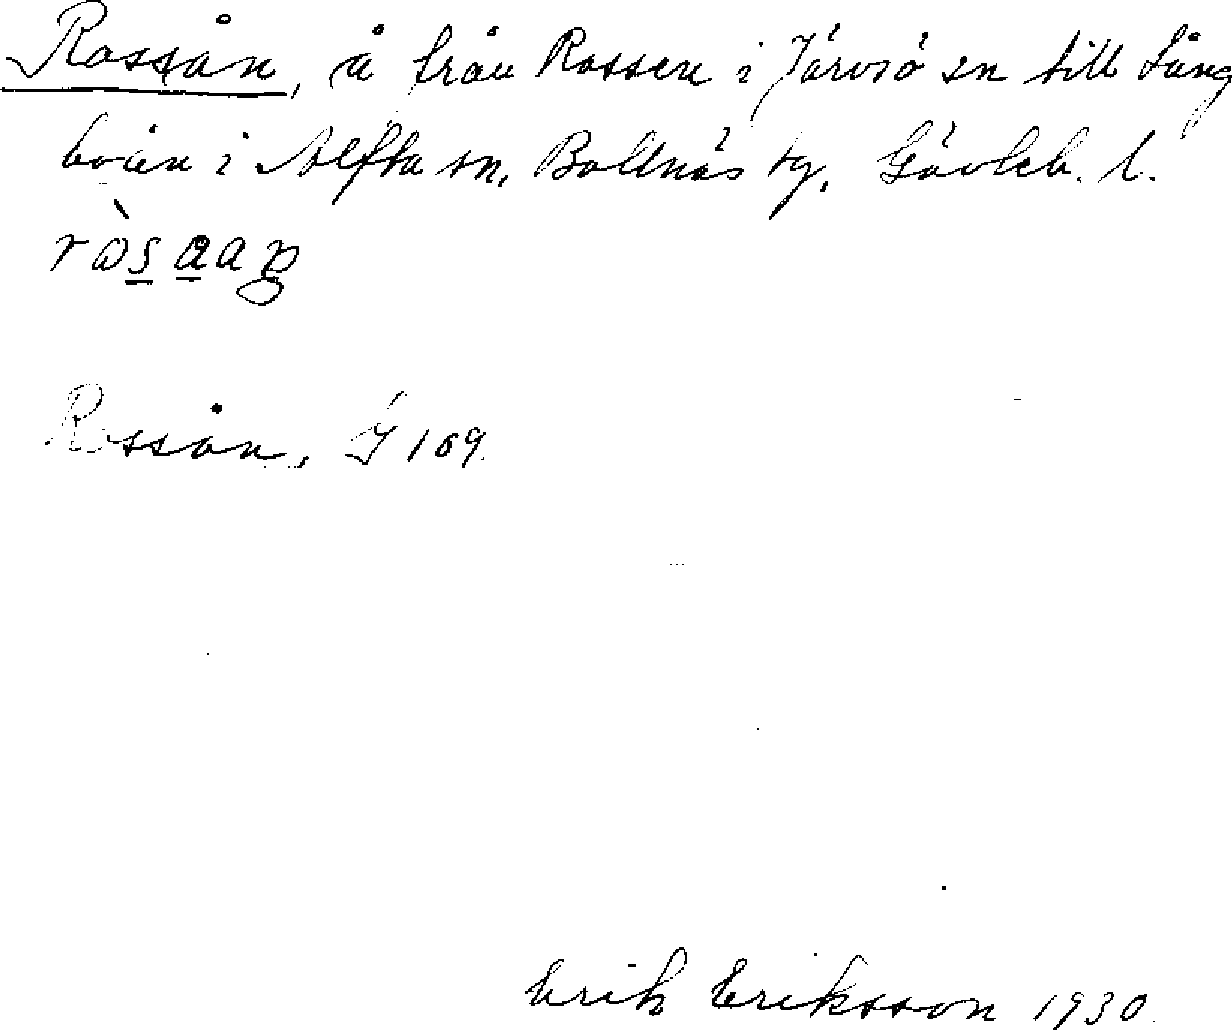 Rossån, å från Rossen i Järvsö sn till Lång
boån i Alfta sn, Bollnäs tg, Gävleb. l.
Rossån, J 109.
Erik Eriksson 1930.